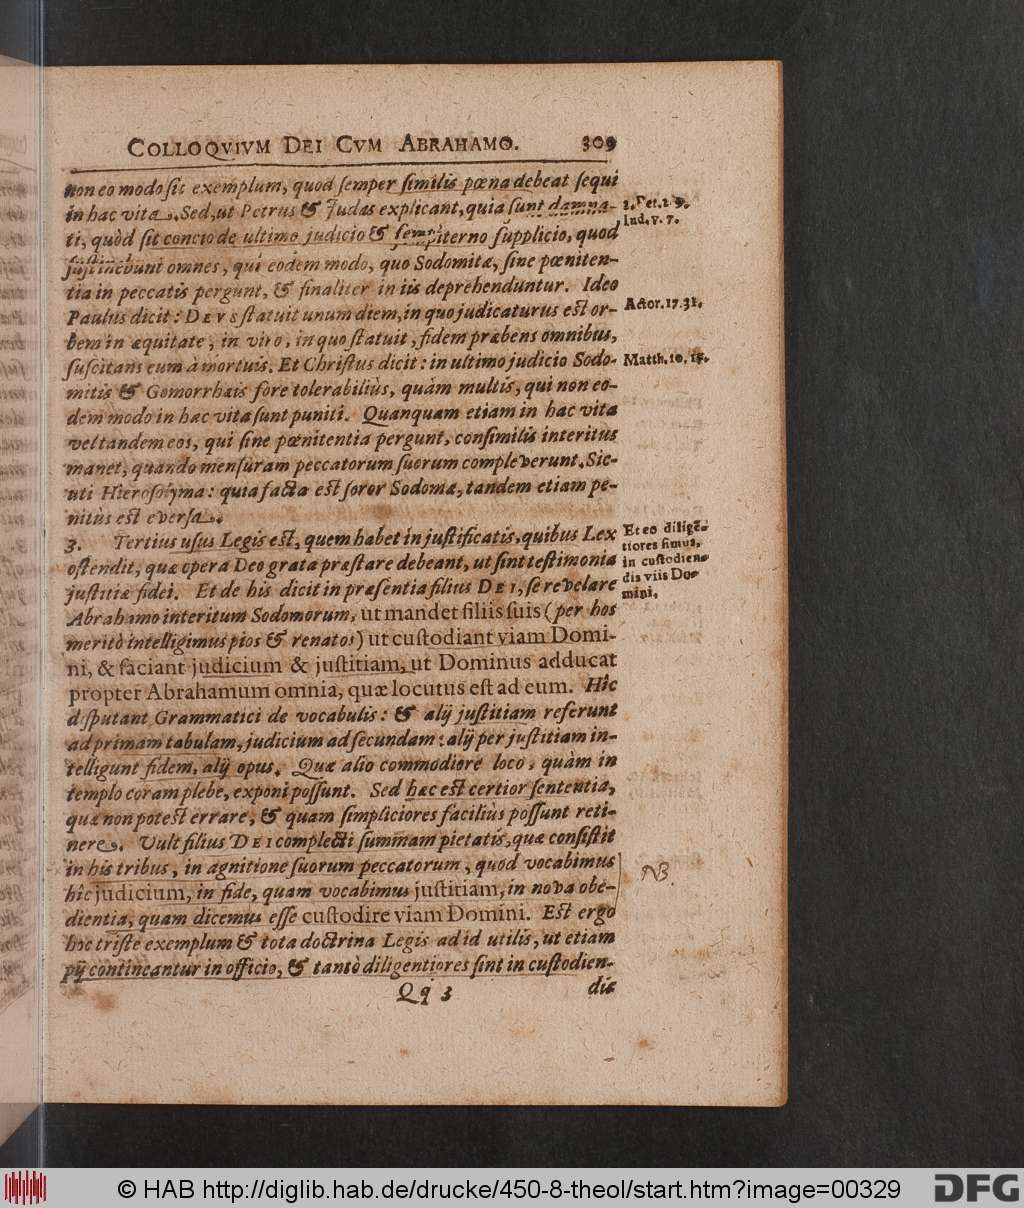 COLLOQVIVM DEI CVM ABRAHAMO. 309
non eo modo sit exemplum, quod semper similis pœna debeat sequi
in hac vita. Sed, ut Petrus & Judas explicant, quia sunt damna-
ti, quòd sit concio de ultimo judicio & sempiterno supplicio, quod
sustinebunt omnes, qui eodem modo, quo Sodomitæ, sine pœniten-
tia in peccatis pergunt, & finaliter in iis deprehenduntur. Ideo
Paulus dicit: DEVS statuit unum diem, in quo judicaturus est or-
bem in æquitate, in viro, in quo statuit, fidem præbens omnibus,
suscitans eum à mortuis. Et Christus dicit: in ultimo judicio Sodo-
mitis & Gomorrhæis fore tolerabiliùs, quàm multis, qui non eo-
dem modo in hac vita sunt puniti. Quanquam etiam in hac vita
vel tandem eos, qui sine pœnitentia pergunt, consimilis interitus
manet, quando mensuram peccatorum suorum compleverunt. Sic-
uti Hierosolyma: quia facta est soror Sodomæ, tandem etiam pe-
nitùs est eversa.
3. Tertius usus Legis est, quem habet in justificatis, quibus Lex
ostendit, quæ opera Deo grata præstare debeant, ut sint testimonia
justitiæ fidei. Et de his dicit in præsentia filius DEI, se revelare
Abrahamo interitum Sodomorum, ut mandet filiis suis (per hos
meritò intelligimus pios & renatos) ut custodiant viam Domi-
ni, & faciant judicium & justitiam, ut Dominus adducat
propter Abrahamum omnia, quæ locutus est ad eum. Hîc
disputant Grammatici de vocabulis: & alij justitiam referunt
ad primam tabulam, judicium ad secundam: alij per justitiam in-
telligunt fidem, alij opus. Quæ alio commodiore loco, quàm in
templo coram plebe, exponi possunt. Sed hæc est certior sententia,
quæ non potest errare, & quam simpliciores faciliùs possunt reti-
nere. Vult filius DEI complecti summam pietatis, quæ consistit
in his tribus, in agnitione suorum peccatorum, quod vocabimus
hîc judicium, in fide, quam vocabimus justitiam, in nova obe-
dientia, quam dicemus esse custodire viam Domini. Est ergo
hoc triste exemplum & tota doctrina Legis ad id utilis, ut etiam
pij contineantur in officio, & tantò diligentiores sint in custodien-
Qq 3 dis
2. Pet. 2. 9.
Iud. v. 7.
Actor. 17. 31.
Matth. 10. 15.
Et eo diligẽ-
tiores simus,
in custodien-
dis viis Do-
mini.
NB.
© HAB http://diglib.hab.de/drucke/450-8-theol/start.htm?image=00329
DFG